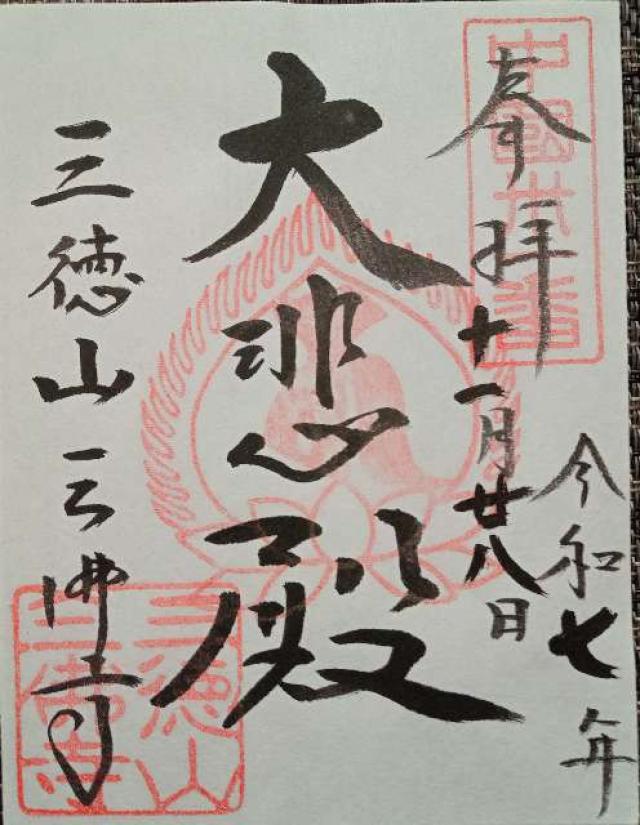 中國丗一番
奉拝
令和七年
十一月廿八日
大悲殿
三徳山三佛寺
三徳山
三佛寺